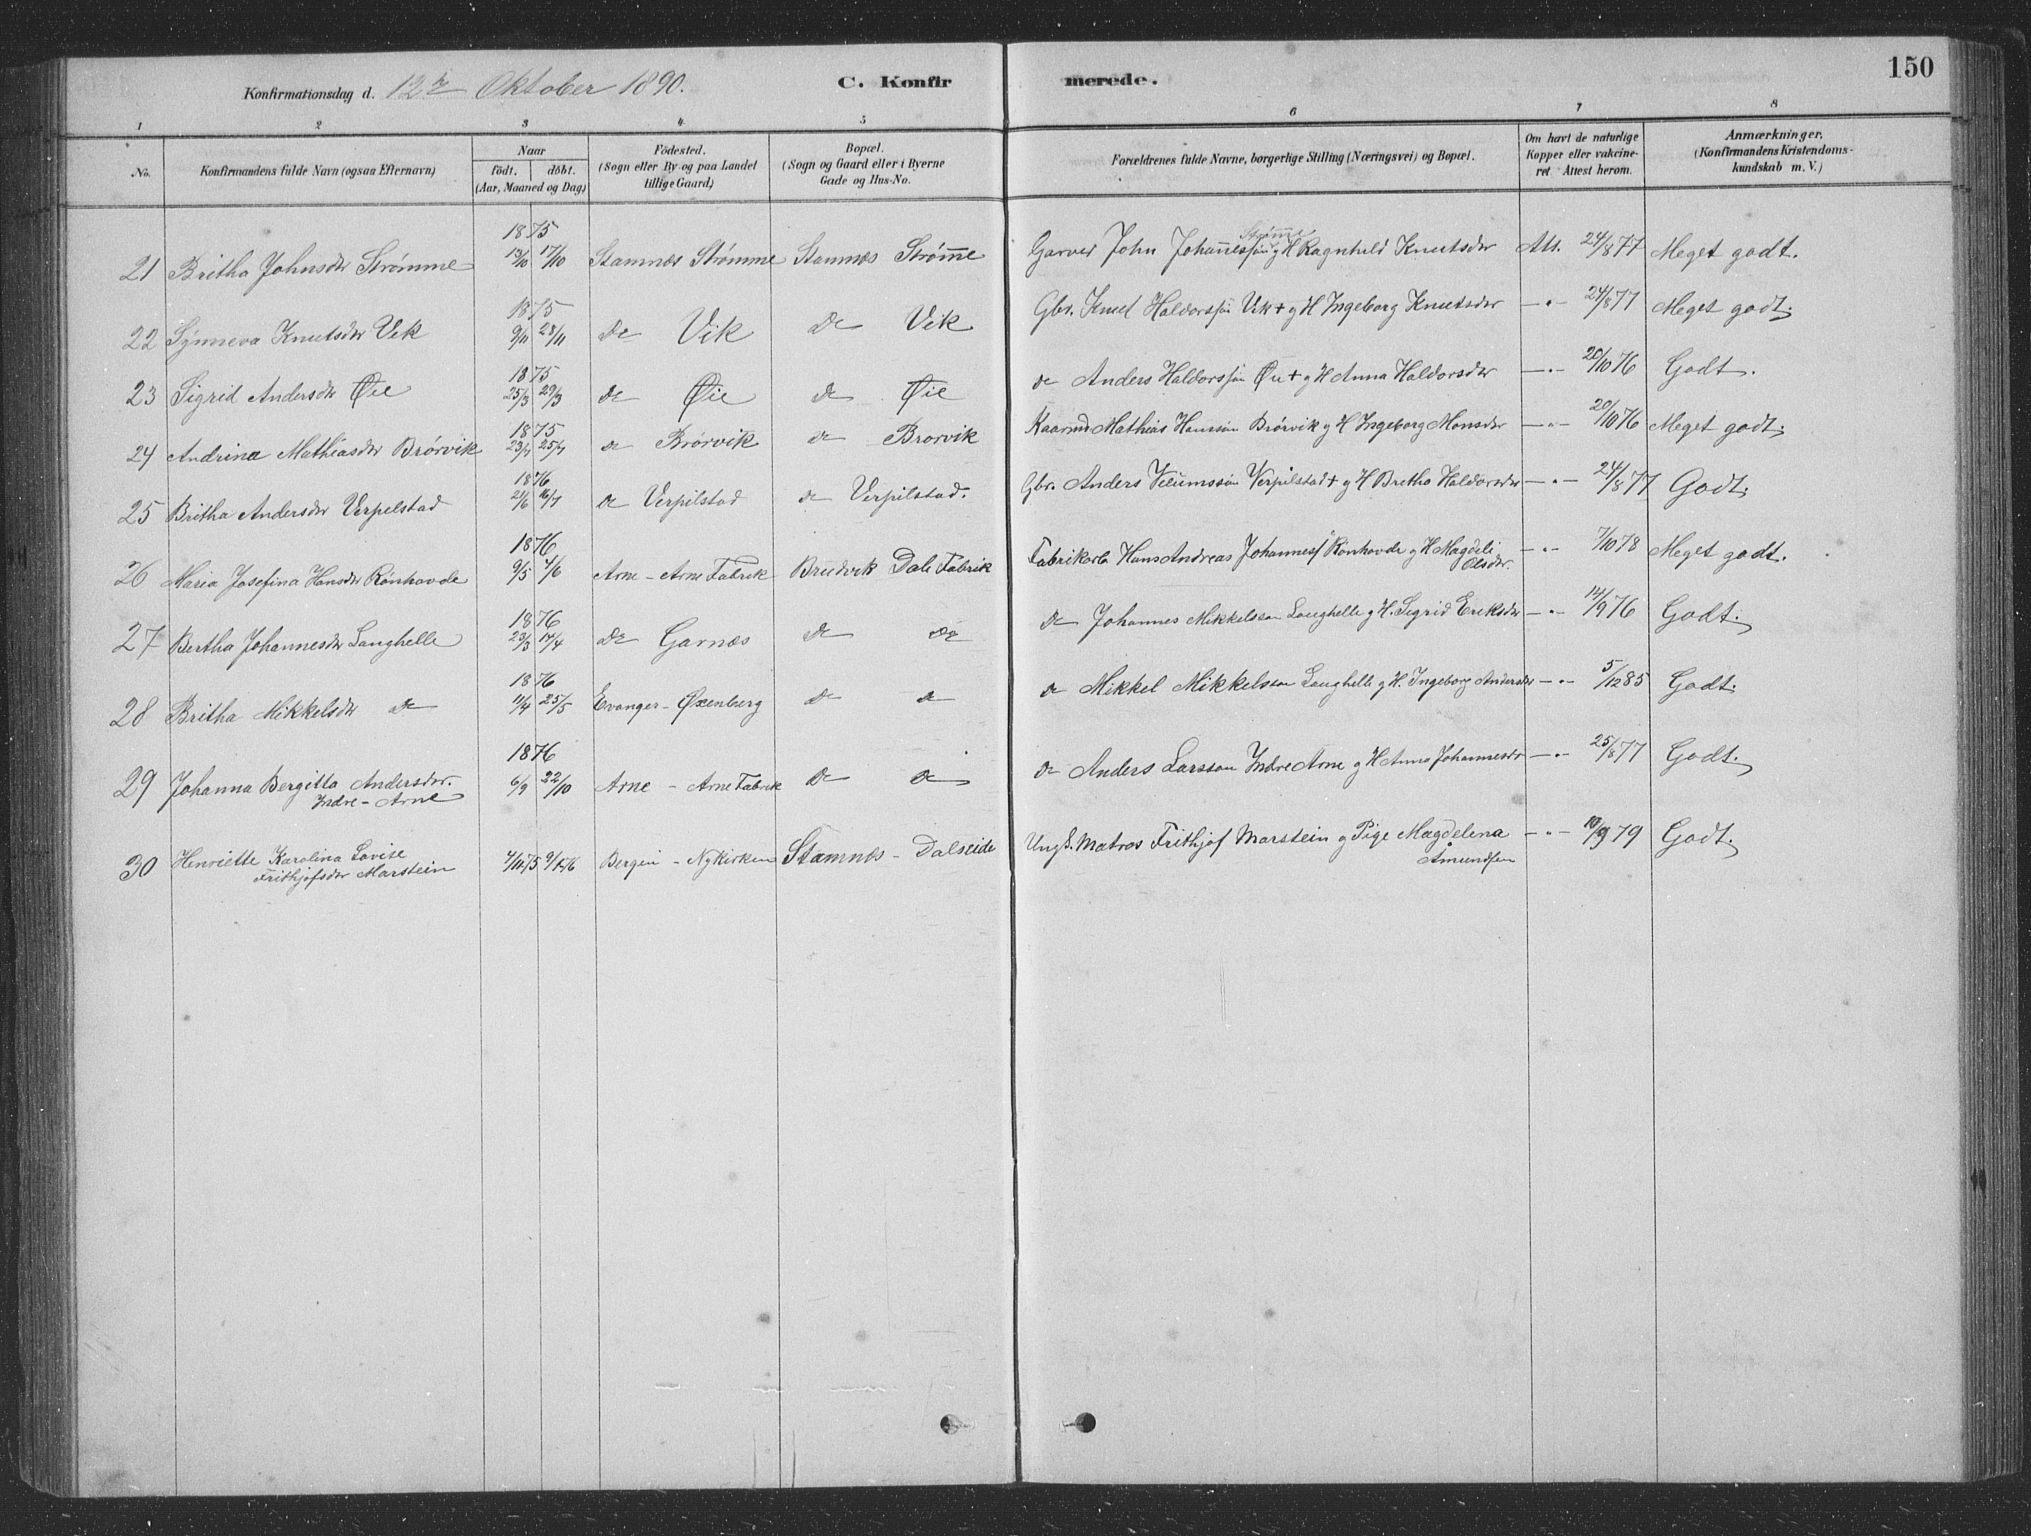 150
Konfirmationsdag d. 12te Oktober 1890. C. Konfirmerede.
1 2 3 4 5 6 7 8
No. Konfirmandens fulde Navn (ogsaa Efternavn) Naar født. døbt. (Aar, Maaned og Dag) Födested. (Sogn eller By og paa Landet tillige Gaard) Bopæl. (Sogn og Gaard eller i Byerne Gade og Hus-No. Forældrenes fulde Navne, borgerlige Stilling (Næringsvei) og Bopæl. Om havt de naturlige Kopper eller vakcineret Attest herom. Anmærkninger. (Konfirmandens Kristendomskundskab m. V.)
1875
21 Britha Johnsdr Strømme 13/10 17/10 Stamnæs Strømme Stamnæs Strømme Garver John Johannesson Strømme og H Ragnhild Knutsdr Att. 24/8 77 Meget godt.
1875
22 Synneva Knutsdr Vik 9/11 28/11 do Vik do Vik Gbr. Knud Haldorsson Vik + og H Ingeborg Knutsdr —„— 24/8 77 Meget godt.
1875
23 Sigrid Andersdr Øie 25/3 29/3 do Øie do Øie do Anders Haldorsson Øie + og H Anna Haldorsdr —„— 20/10 76 Godt.
1875
24 Andrina Mathiasdr Brørvik 23/7 25/7 do Brørvik do Brørvik Mathias Hansson Brørvik og H Ingeborg Monsdr —„— 20/10 76 Meget godt.
1876
25 Britha Andersdr Verpelstad 21/6 16/7 do Verpilstad do Verpilstad. Gbr. Anders Verpilstad + og H Britha Haldorsdr —„— 24/8 77 Godt.
1876
26 Maria Josefina Hansdr Rönhovde 9/5 4/6 Arne - Arne Fabrik Bruvik Dale Fabrik Fabrikarb Hans Andreas Johanness Rönhovde og H Magdeli Olsdr. —„— 7/10 78 Meget godt.
1876
27 Bertha Johannesdr Langhelle 23/3 17/4 do Garnæs do do do Johannes Mikkelsson Langhelle og H. Sigrid Eriksdr —„— 14/9 76 Godt.
1876
28 Britha Mikkelsdr do 11/4 25/5 Evanger - Øxenberg do do do Mikkel Mikkelsson Langhelle og H. Ingeborg Andersdr —„— 5/12 85 Godt.
1876
29 Johanna Bergitta Andersdr. Indre-Arne 6/9 22/10 Arne - Arne Fabrik do do do Anders Larsson Indre Arne og H Anna Johannesdr —„— 25/8 77 Godt.
30 Henriette Karolina Lovise Frithjofsdr Marstein 7/10 75 Bergen - Nykirken Stamnæs - Dalseide Ungk. Matros Frithjof Marstein og Pige Magdelena Amundsen —„— 10/9 79 Godt.